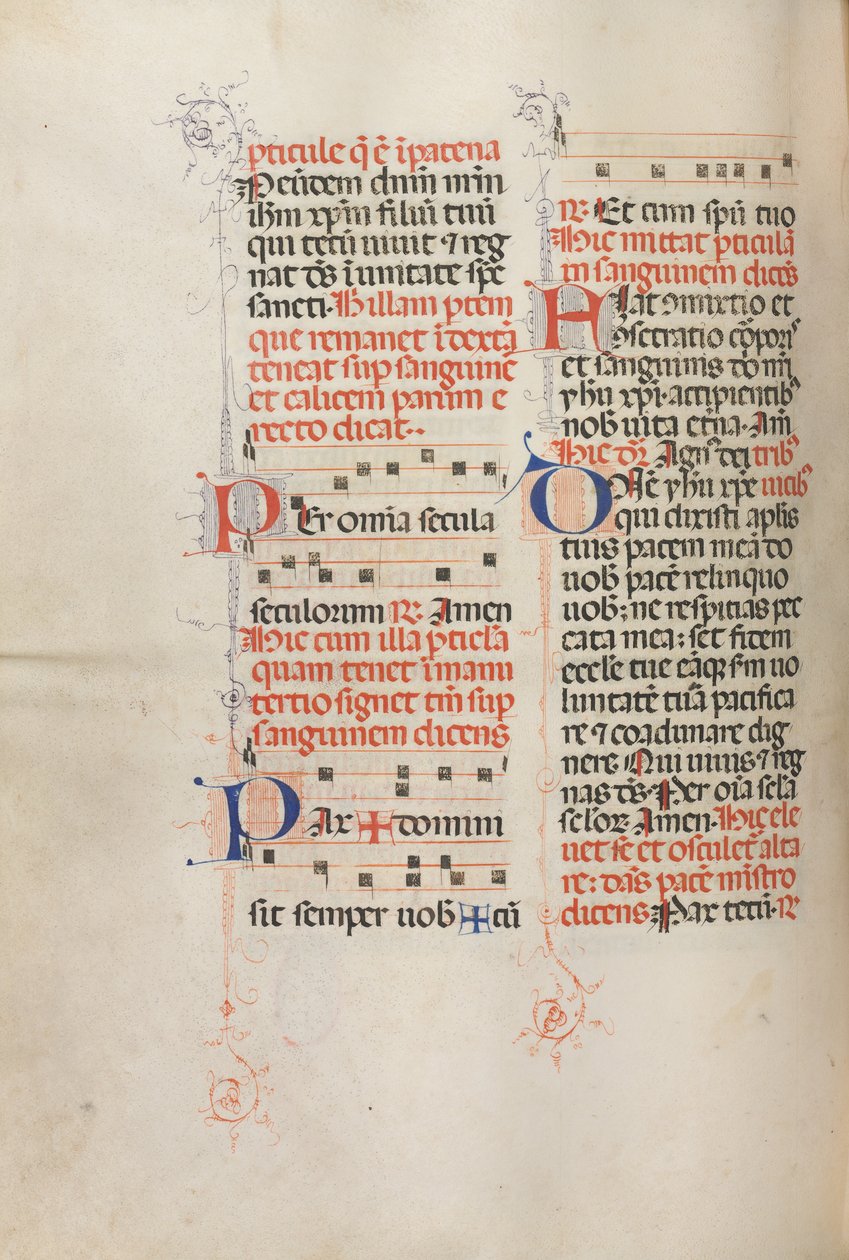 pticule q̄ ē ī patena
Peūdem dnm̄ nrm̄
ih̄m xp̄m filiū tuū
qui tecū uiuit ⁊ reg
nat dš ī unitate spš
sancti. Hic illam ptem
que remanet ī dextā
teneat sup sanguinē
et calicem parum e
recto dicat..
Per om̄ia secula
seculorum ℟. Amen
Hic cum illa p̄ticl̄a
quam tenet ī manu
tertio signet tm̄ sup
sanguinem dicens
Pax ✠ domini
sit semper uob ✠ cū
℟. Et cum spū tuo
Hic mittat pticulā
in sanguinem dicēs
Fiat ꝯmixtio et
ꝯsecratio cōporis
et sanguinis do nr̄i
yh̄u xp̄i. accipientibꝰ
nob uita etn̄a. Am̄
Hic dr̄ Agnꝰ dei tribꝰ
Dn̄e yh̄u xp̄e uicibꝰ
qui dixisti aplis
tuis pacem meā do
uob pacē relinquo
uob; ne respitias pec
cata mea: set fidem
eccl̄e tue eāqꝫ sm̄ uo
luntatē tuā pacifica
re ⁊ coadunare dig
nere Qui uiuis ⁊ reg
nas dš. Per oīa scl̄a
scl̄oꝝ Amen. Hic ele
uet se et osculet alta
re: dās pacē mīstro
dicens Pax tecū. ℟